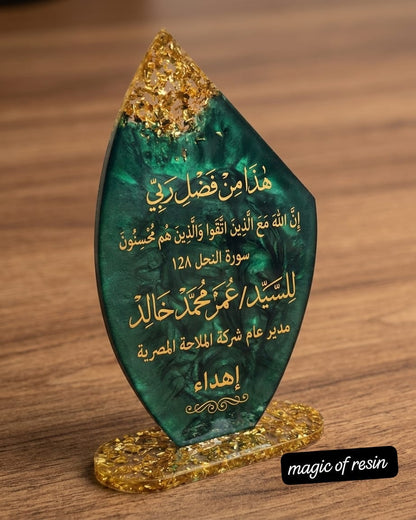 هٰذَا مِنْ فَضْلِ رَبِّي
إِنَّ اللّٰهَ مَعَ الَّذِينَ اتَّقَوا وَالَّذِينَ هُم مُّحْسِنُونَ
سورة النحل ١٢٨
لِلسَّيِّد/عُمَرْ مُحَمَّدْ خَالِدْ
مدير عام شركة الملاحة المصرية
إهداء
magic of resin